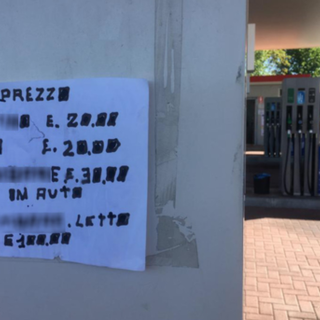 PREZZO
E. 20.00
E. 20.00
E E. 30.00
IN AUTO
. LETTO
E 100.00